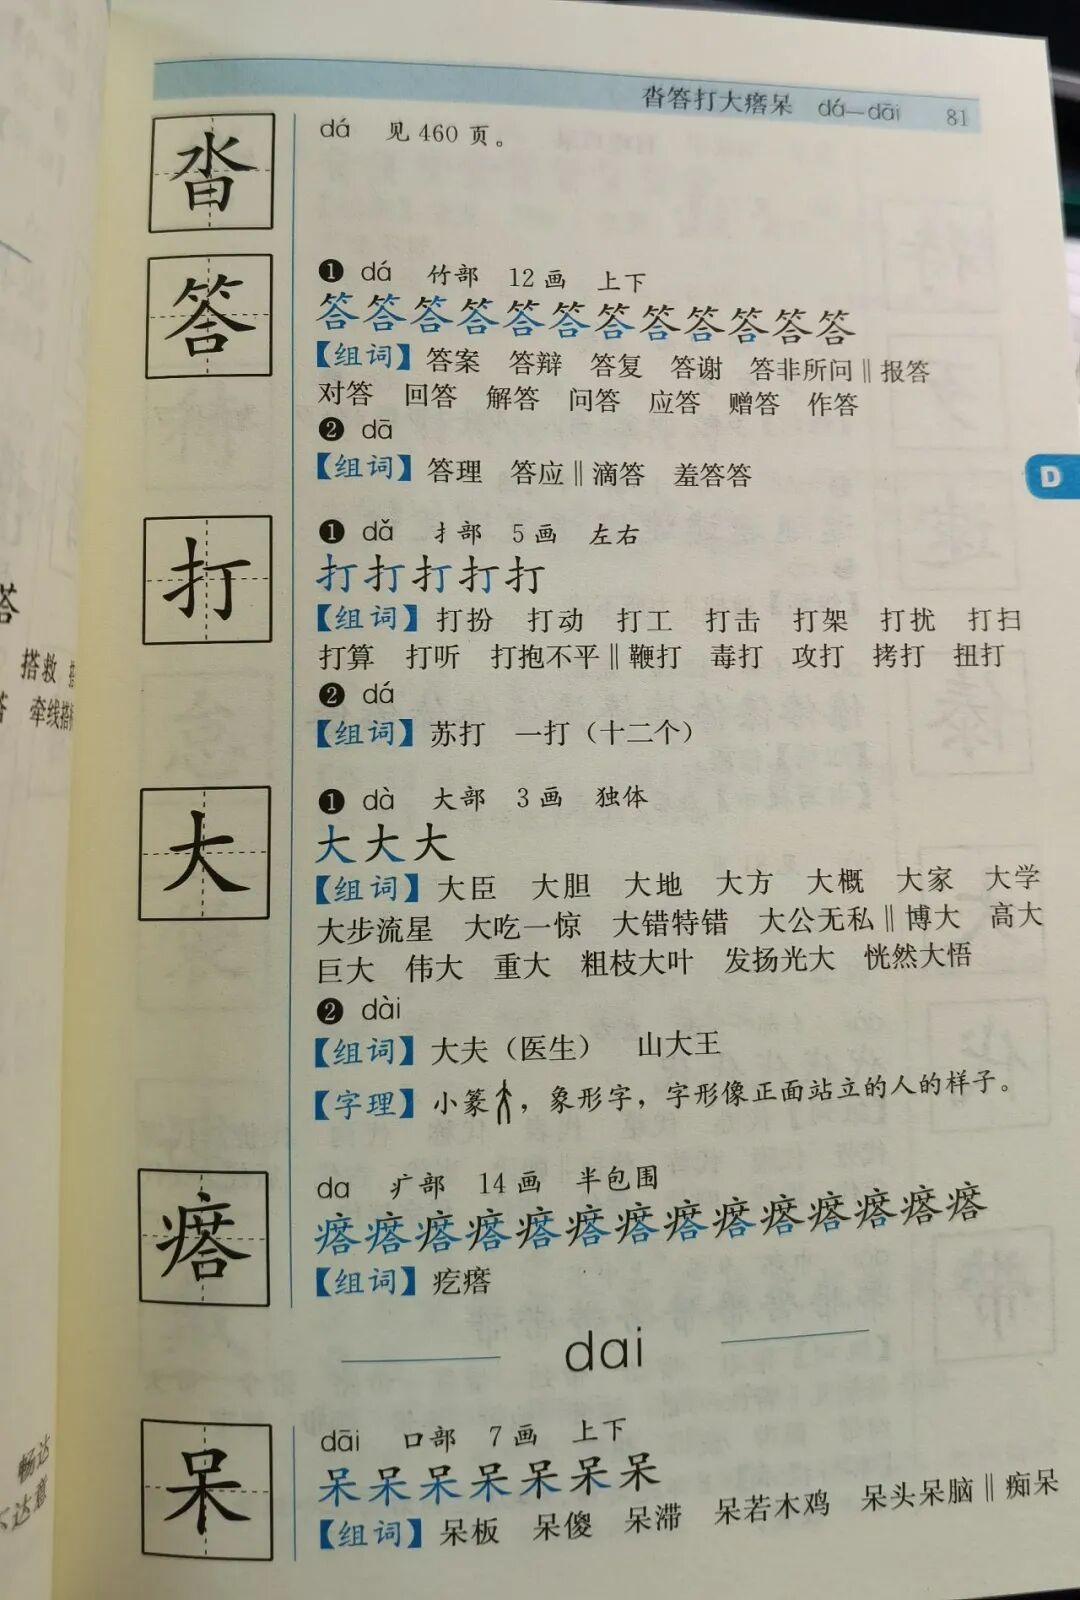 沓答打大瘩呆 dá—dāi 81
沓 dá 见460页。
答 ❶ dá 竹部 12画 上下
答答答答答答答答答答答答
【组词】答案 答辩 答复 答谢 答非所问‖报答
对答 回答 解答 问答 应答 赠答 作答
❷ dā
【组词】答理 答应‖滴答 羞答答
D
打 ❶ dǎ 扌部 5画 左右
打打打打打
【组词】打扮 打动 打工 打击 打架 打扰 打扫
打算 打听 打抱不平‖鞭打 毒打 攻打 拷打 扭打
❷ dá
【组词】苏打 一打（十二个）
大 ❶ dà 大部 3画 独体
大大大
【组词】大臣 大胆 大地 大方 大概 大家 大学
大步流星 大吃一惊 大错特错 大公无私‖博大 高大
巨大 伟大 重大 粗枝大叶 发扬光大 恍然大悟
❷ dài
【组词】大夫（医生） 山大王
【字理】小篆，象形字，字形像正面站立的人的样子。
瘩 da 疒部 14画 半包围
瘩瘩瘩瘩瘩瘩瘩瘩瘩瘩瘩瘩瘩瘩
【组词】疙瘩
dai
呆 dāi 口部 7画 上下
呆呆呆呆呆呆呆
【组词】呆板 呆傻 呆滞 呆若木鸡 呆头呆脑‖痴呆
搭救
牵线搭
畅达
达意